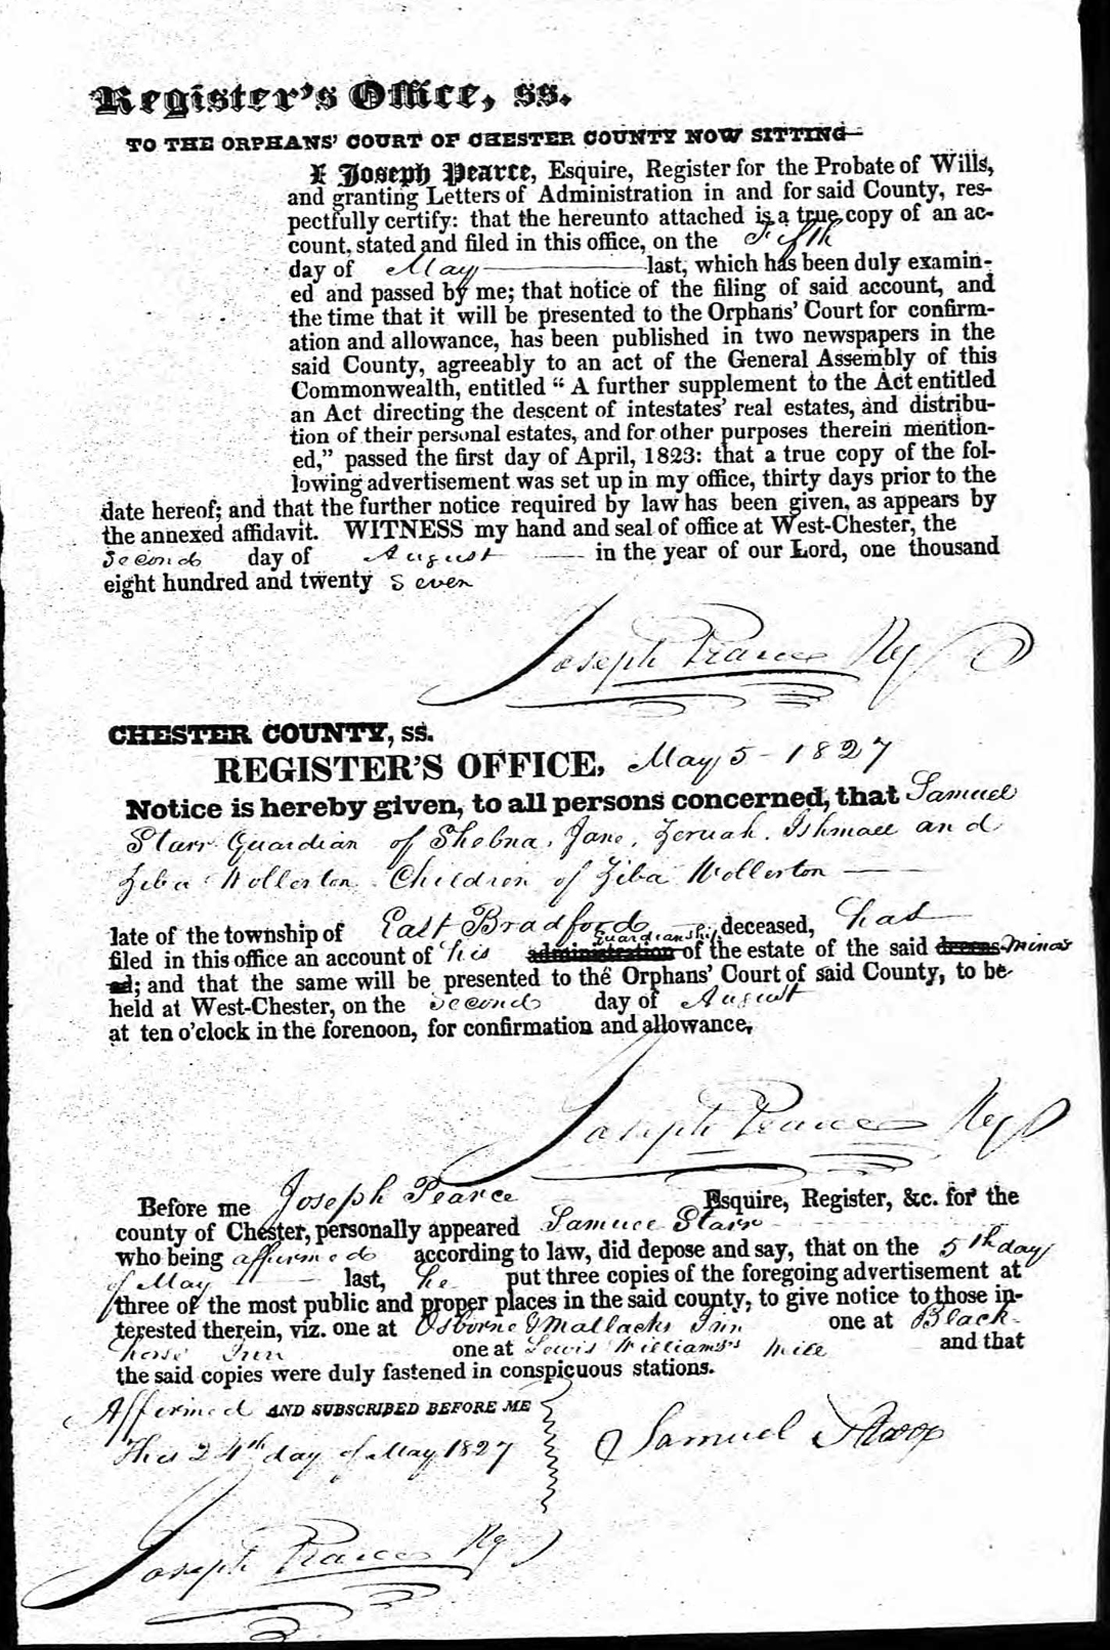 Register's Office, ss.
TO THE ORPHANS' COURT OF CHESTER COUNTY NOW SITTING—
I Joseph Pearce, Esquire, Register for the Probate of Wills,
and granting Letters of Administration in and for said County, res-
pectfully certify: that the hereunto attached is a true copy of an ac-
count, stated and filed in this office, on the Fifth
day of May last, which has been duly examin-
ed and passed by me; that notice of the filing of said account, and
the time that it will be presented to the Orphans' Court for confirm-
ation and allowance, has been published in two newspapers in the
said County, agreeably to an act of the General Assembly of this
Commonwealth, entitled "A further supplement to the Act entitled
an Act directing the descent of intestates' real estates, and distribu-
tion of their personal estates, and for other purposes therein mention-
ed," passed the first day of April, 1823: that a true copy of the fol-
lowing advertisement was set up in my office, thirty days prior to the
date hereof; and that the further notice required by law has been given, as appears by
the annexed affidavit. WITNESS my hand and seal of office at West-Chester, the
Second day of August in the year of our Lord, one thousand
eight hundred and twenty Seven
Joseph Pearce Reg
CHESTER COUNTY, ss.
REGISTER'S OFFICE, May 5 - 1827
Notice is hereby given, to all persons concerned, that Samuel
Starr Guardian of Shebna, Jane, Zeruah, Ishmael and
Ziba Wollerton Children of Ziba Wollerton
late of the township of East Bradford deceased, has
guardianship
filed in this office an account of his administration of the estate of the said deceas minors
ed; and that the same will be presented to the Orphans' Court of said County, to be
held at West-Chester, on the second day of August
at ten o'clock in the forenoon, for confirmation and allowance,
Joseph Pearce Reg
Before me Joseph Pearce Esquire, Register, &c. for the
county of Chester, personally appeared Samuel Starr
who being affirmed according to law, did depose and say, that on the 5th day
of May last, he put three copies of the foregoing advertisement at
three of the most public and proper places in the said county, to give notice to those in-
terested therein, viz. one at Osborne & Mallacks Inn one at Black
horse Inn one at Lewis Williams's Mill and that
the said copies were duly fastened in conspicuous stations.
Affirmed AND SUBSCRIBED BEFORE ME
This 24th day of May 1827
Samuel Starr
Joseph Pearce Reg